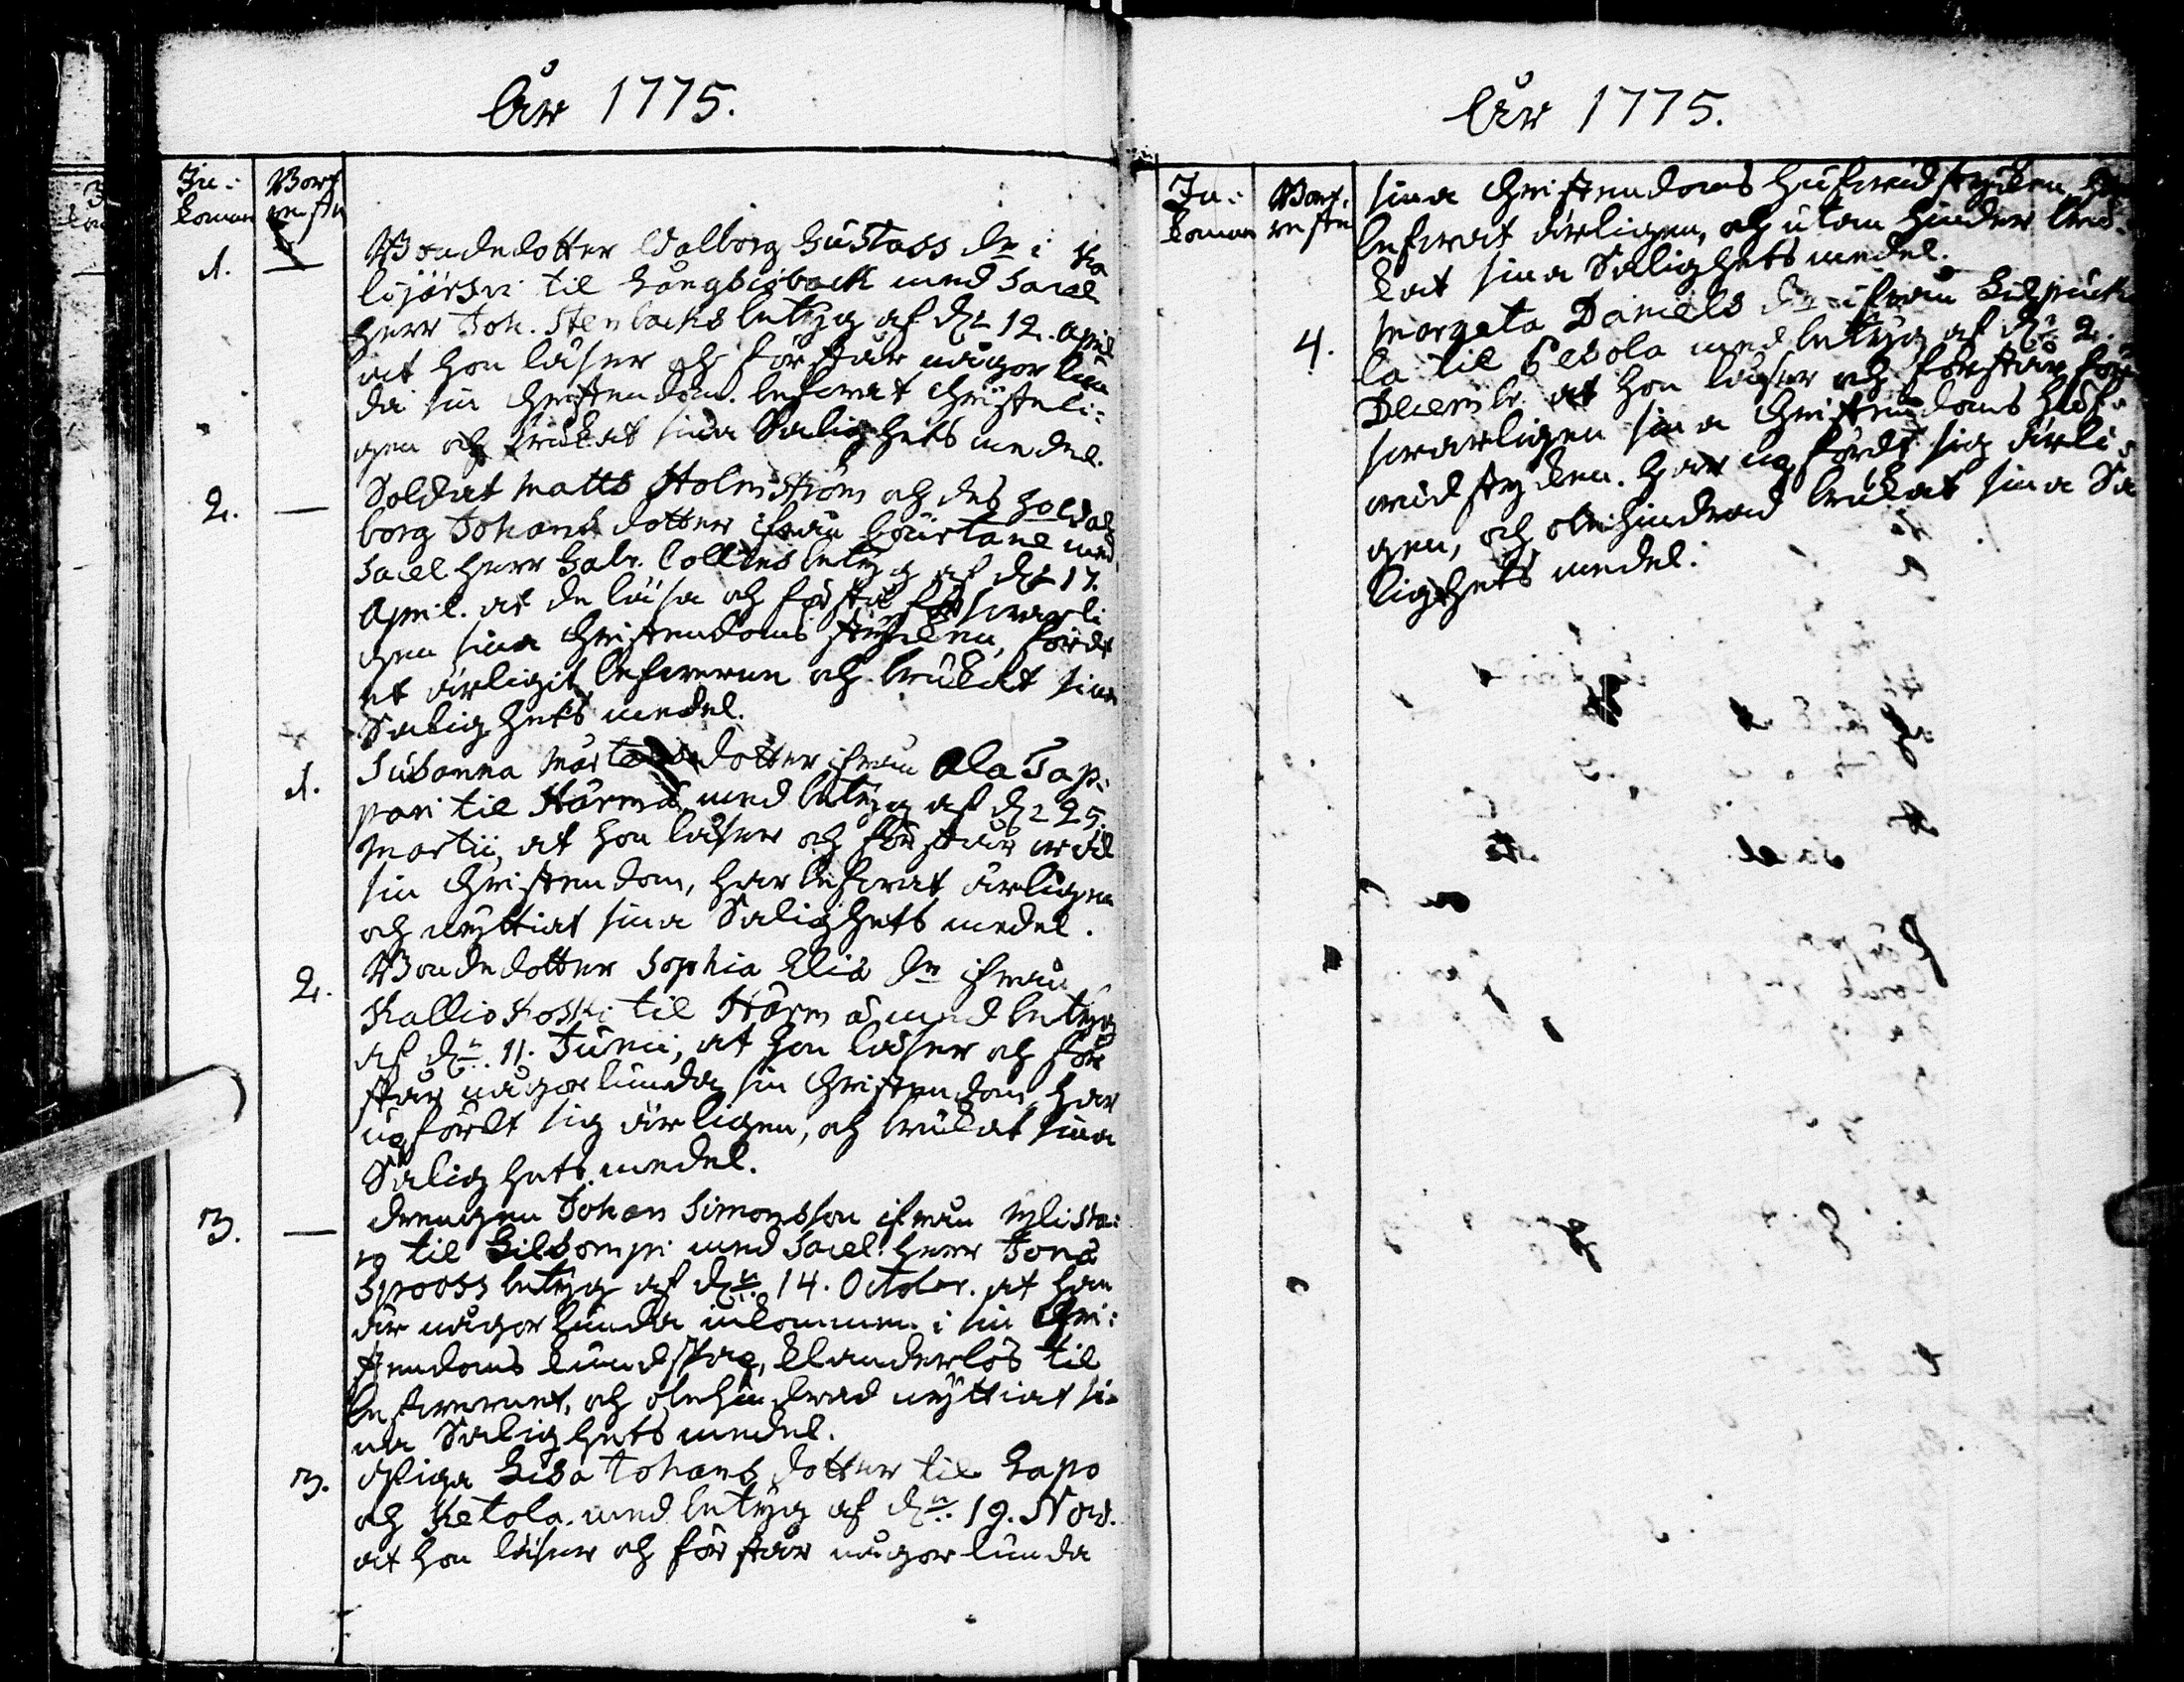 År 1775.
In-
komne
Bort
reste
1. —
Bondedotter Walborg Gustafs dr i Ka
lijärvi til Långbisback med Sacel
Herr Joh. Stenbacks betyg af dn 12. April
at hon läser och förstår någor lun
da sin Christendom. lefwat Christeli:
gen och brukat sina Salighets medel.
2. —
Soldat Matts Holmström och des
borg Johans dotter ifrån med
Sacel Herr Gabr. betyg af dn 17.
April. at de läsa och förstå försvarli
gen sina Christendoms stycken, fördt
et ärligit lefwerne och brukat sina
Salighets medel.
1.
Susanna Mårtens dotter ifrån Ala Jap:
pari til Härmä med betyg af dn 25.
Martii, at hon läser och förstår wäl
sin Christendom, har lefwat ärligen
och nyttiat sina Salighets medel.
2.
Bondedotter Sophia Elias dr ifrån
Kallio Koski til Härmä med betyg
af dn 11. Junii, at hon läser och för
står någorlunda sin Christendom, har
upfördt sig ärligen, och brukat sina
Salighets medel.
3. —
drengen Johan Simonsson ifrån Ylista:
ro til med Sacel. Herr Jonas
Sprooss betyg af dn 14. October. at han
är någorlunda inkommen i sin Chri:
stendoms kundskap, klanderlös til
lefwernet, och obehindrad nyttiat si-
na Salighets medel.
3.
Piga Lisa Johans dotter til Lapo
och Ketola med betyg af dn 19. Nov.
at hon läser och förstår någorlunda
År 1775.
In-
komne
Bort-
reste
sina Christendoms hufwudstycken,
lefwat ärligen, och utan hinder bru-
kat sina Salighets medel.
4.
Margeta Daniels dr ifrån
la til med betyg af dn 2.
Decembr. at hon läser och förstår för
swarligen sina Christendoms huf-
wudstycken. har upfördt sig ärli-
gen, och obehindrad brukat sina Sa
lighets medel.